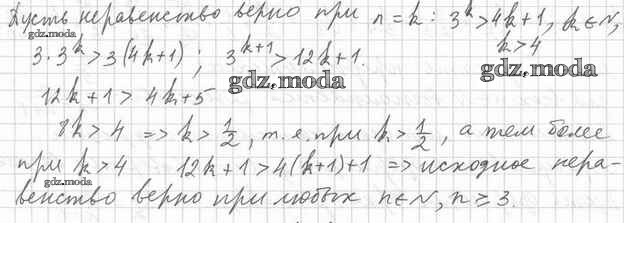 Пусть неравенство верно при n=k: 3^k>4k+1, k∈N,
gdz.moda
k>4
3·3^k>3(4k+1); 3^{k+1}>12k+1.
gdz.moda
gdz.moda
12k+1>4k+5
8k>4 => k>1/2, т.е. при k>1/2, а тем более
при k>4 12k+1>4(k+1)+1 => исходное нера-
gdz.moda
венство верно при любых n∈N, n≥3.